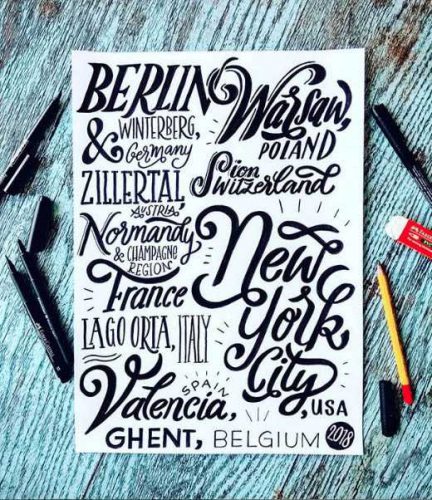 BERLIN
& WINTERBERG,
Germany
Warsaw,
POLAND
ZILLERTAL,
AUSTRIA,
Sion
Switzerland
Normandy
& CHAMPAGNE
REGION
France
New
York
City,
,USA
LAGO ORTA, ITALY
SPAIN
Valencia,
GHENT, BELGIUM 2018